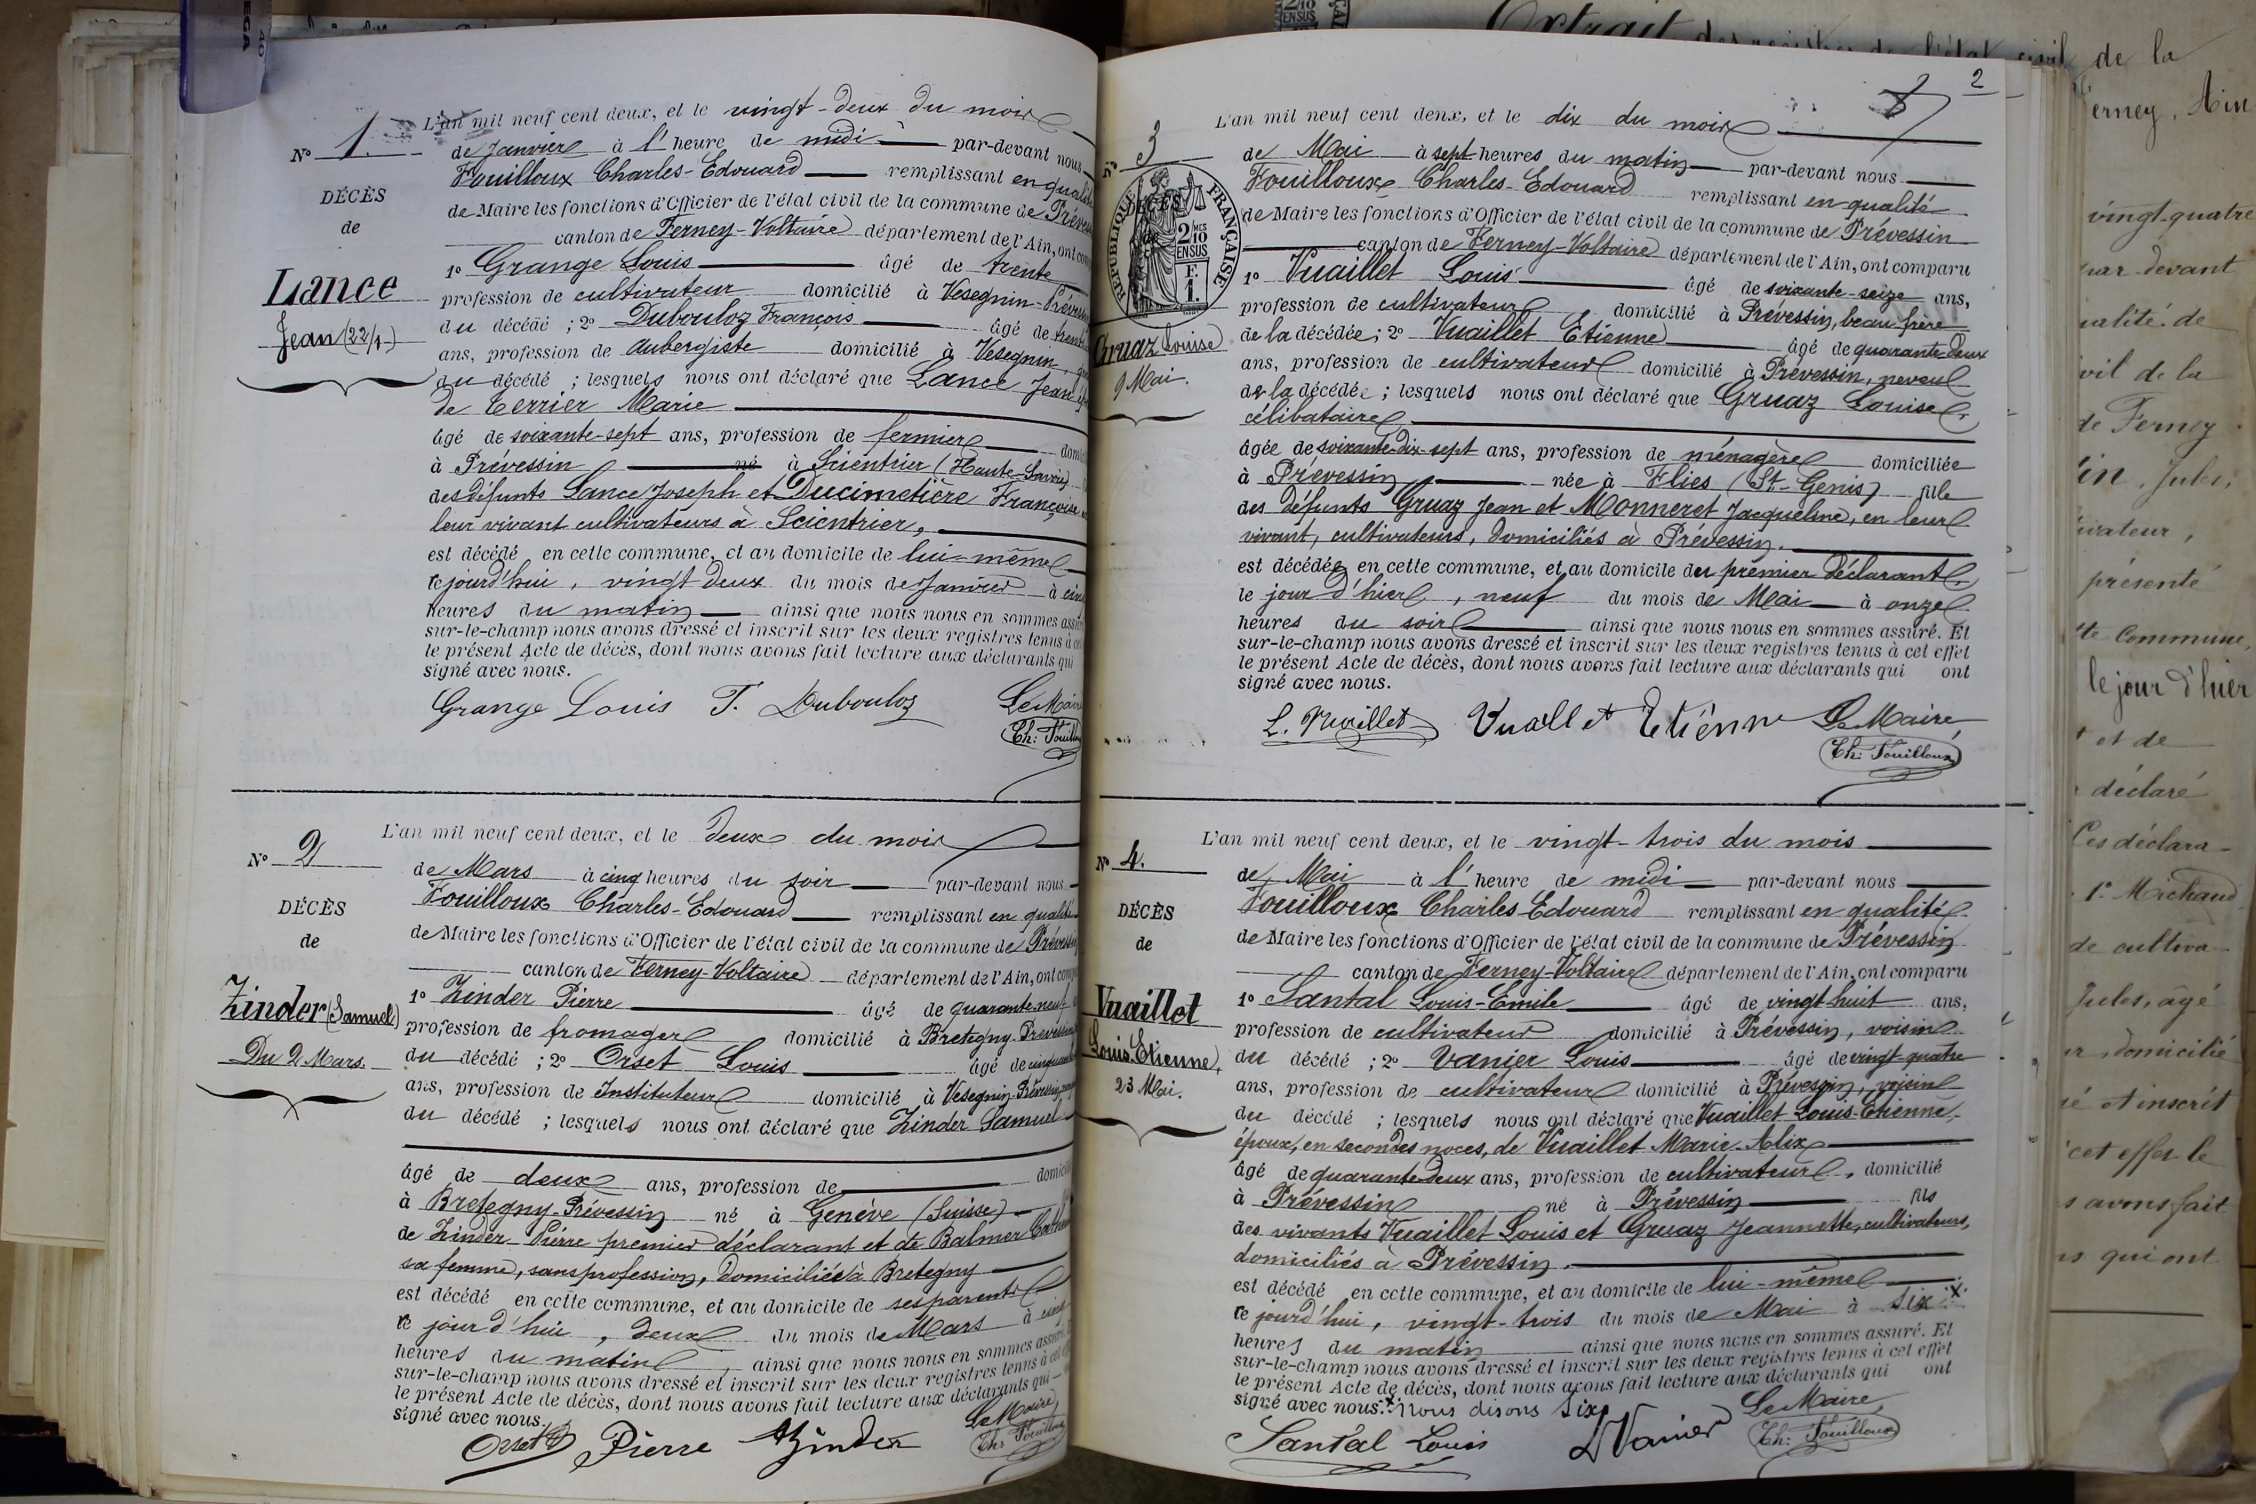 L'an mil neuf cent deux, et le vingt-deux du mois
N° 1.
de Janvier à l'heure de midi par-devant nous
Fouilloux Charles-Edouard remplissant en qualité
DÉCÈS
de Maire les fonctions d'Officier de l'état civil de la commune de
de
canton de Ferney-Voltaire département de l'Ain, ont
1° Grange Louis âgé de trente
Lance
profession de cultivateur domicilié à Vesegnin-
Jean (22/1)
du décédé ; 2° Dubouloz François âgé de
ans, profession de aubergiste domicilié à Vesegnin,
du décédé ; lesquels nous ont déclaré que Lance Jean
de Terrier Marie
âgé de soixante-sept ans, profession de fermier
à Prévessin né à Scientrier (Haute-Savoie)
des défunts Lance Joseph et Ducimetière Françoise
leur vivant cultivateurs à Scientrier,
est décédé en cette commune, et au domicile de lui-même
ce jourd'hui, vingt-deux du mois de Janvier à
heures du matin ainsi que nous nous en sommes
sur-le-champ nous avons dressé et inscrit sur les deux registres tenus à
le présent Acte de décès, dont nous avons fait lecture aux déclarants qui
signé avec nous.
Grange Louis F. Dubouloz Le Maire
Ch: Fouilloux
L'an mil neuf cent deux, et le deux du mois
N° 2
de Mars à cinq heures du soir par-devant nous
Fouilloux Charles-Edouard remplissant en qualité
DÉCÈS
de Maire les fonctions d'Officier de l'état civil de la commune de Prévessin
de
canton de Ferney-Voltaire département de l'Ain, ont
1° Zinder Pierre âgé de quarante-neuf
Zinder (Samuel)
profession de fromager domicilié à Bretegny-
Du 2 Mars.
du décédé ; 2° Orset Louis âgé de
ans, profession de Instituteur domicilié à Vesegnin-
du décédé ; lesquels nous ont déclaré que Zinder Samuel
âgé de deux ans, profession de
à Bretegny-Prévessin né à Genève (Suisse)
de Zinder Pierre premier déclarant et de Balmer
sa femme, sans profession, domiciliée à Bretegny
est décédé en cette commune, et au domicile de ses parents
ce jourd'hui, deux du mois de Mars à
heures du matin, ainsi que nous nous en sommes assuré.
sur-le-champ nous avons dressé et inscrit sur les deux registres tenus à cet
le présent Acte de décès, dont nous avons fait lecture aux déclarants qui
signé avec nous.
Orset Pierre Zinder Le Maire
Ch: Fouilloux
2
L'an mil neuf cent deux, et le dix du mois
N° 3
de Mai à sept heures du matin par-devant nous
Fouilloux Charles-Edouard remplissant en qualité
DÉCÈS
de
RÉPUBLIQUE FRANÇAISE
2 MES 10 EN SUS
1 F.
de Maire les fonctions d'Officier de l'état civil de la commune de Prévessin
canton de Ferney-Voltaire département de l'Ain, ont comparu
1° Vuaillet Louis âgé de soixante-seize ans,
profession de cultivateur domicilié à Prévessin, beau-frère
Gruaz Louise
de la décédée ; 2° Vuaillet Etienne âgé de quarante-deux
9 Mai.
ans, profession de cultivateur domicilié à Prévessin, neveu
de la décédée ; lesquels nous ont déclaré que Gruaz Louise,
célibataire
âgée de soixante-dix-sept ans, profession de ménagère domiciliée
à Prévessin née à Flies (St-Genis) fille
des défunts Gruaz Jean et Monneret Jacqueline, en leur
vivant, cultivateurs, domiciliés à Prévessin.
est décédée en cette commune, et au domicile du premier déclarant,
le jour d'hier, neuf du mois de Mai à onze
heures du soir ainsi que nous nous en sommes assuré. Et
sur-le-champ nous avons dressé et inscrit sur les deux registres tenus à cet effet
le présent Acte de décès, dont nous avons fait lecture aux déclarants qui ont
signé avec nous.
L. Vuaillet Vuaillet Etienne Le Maire,
Ch: Fouilloux
L'an mil neuf cent deux, et le vingt-trois du mois
N° 4.
de Mai à l'heure de midi par-devant nous
Fouilloux Charles Edouard remplissant en qualité
DÉCÈS
de Maire les fonctions d'Officier de l'état civil de la commune de Prévessin
de
canton de Ferney-Voltaire département de l'Ain, ont comparu
1° Santal Louis-Emile âgé de vingt-huit ans,
Vuaillet
profession de cultivateur domicilié à Prévessin, voisin
Louis-Etienne,
du décédé ; 2° Vanier Louis âgé de vingt-quatre
23 Mai.
ans, profession de cultivateur domicilié à Prévessin, voisin
du décédé ; lesquels nous ont déclaré que Vuaillet Louis-Etienne,
époux, en secondes noces, de Vuaillet Marie-Alix
âgé de quarante-deux ans, profession de cultivateur, domicilié
à Prévessin né à Prévessin fils
des vivants Vuaillet Louis et Gruaz Jeannette, cultivateurs,
domiciliés à Prévessin.
est décédé en cette commune, et au domicile de lui-même
ce jourd'hui, vingt-trois du mois de Mai à six x
heures du matin ainsi que nous nous en sommes assuré. Et
sur-le-champ nous avons dressé et inscrit sur les deux registres tenus à cet effet
le présent Acte de décès, dont nous avons fait lecture aux déclarants qui ont
signé avec nous. x Nous disons six
Santal Louis L Vanier Le Maire,
Ch: Fouilloux
Extrait des registres de l'état civil de la
Ferney, Ain
vingt-quatre
par devant
qualité de
civil de la
de Ferney
Jules,
présenté
commune,
le jour d'hier
et de
déclaré
Ces déclara-
1° Michaud
de cultiva-
Jules, âgé
domicilié
et inscrit
cet effet le
avons fait
qui ont